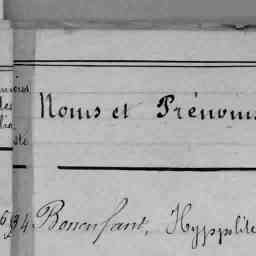 Noms et Prénoms
34 Bonenfant, Hyppolite